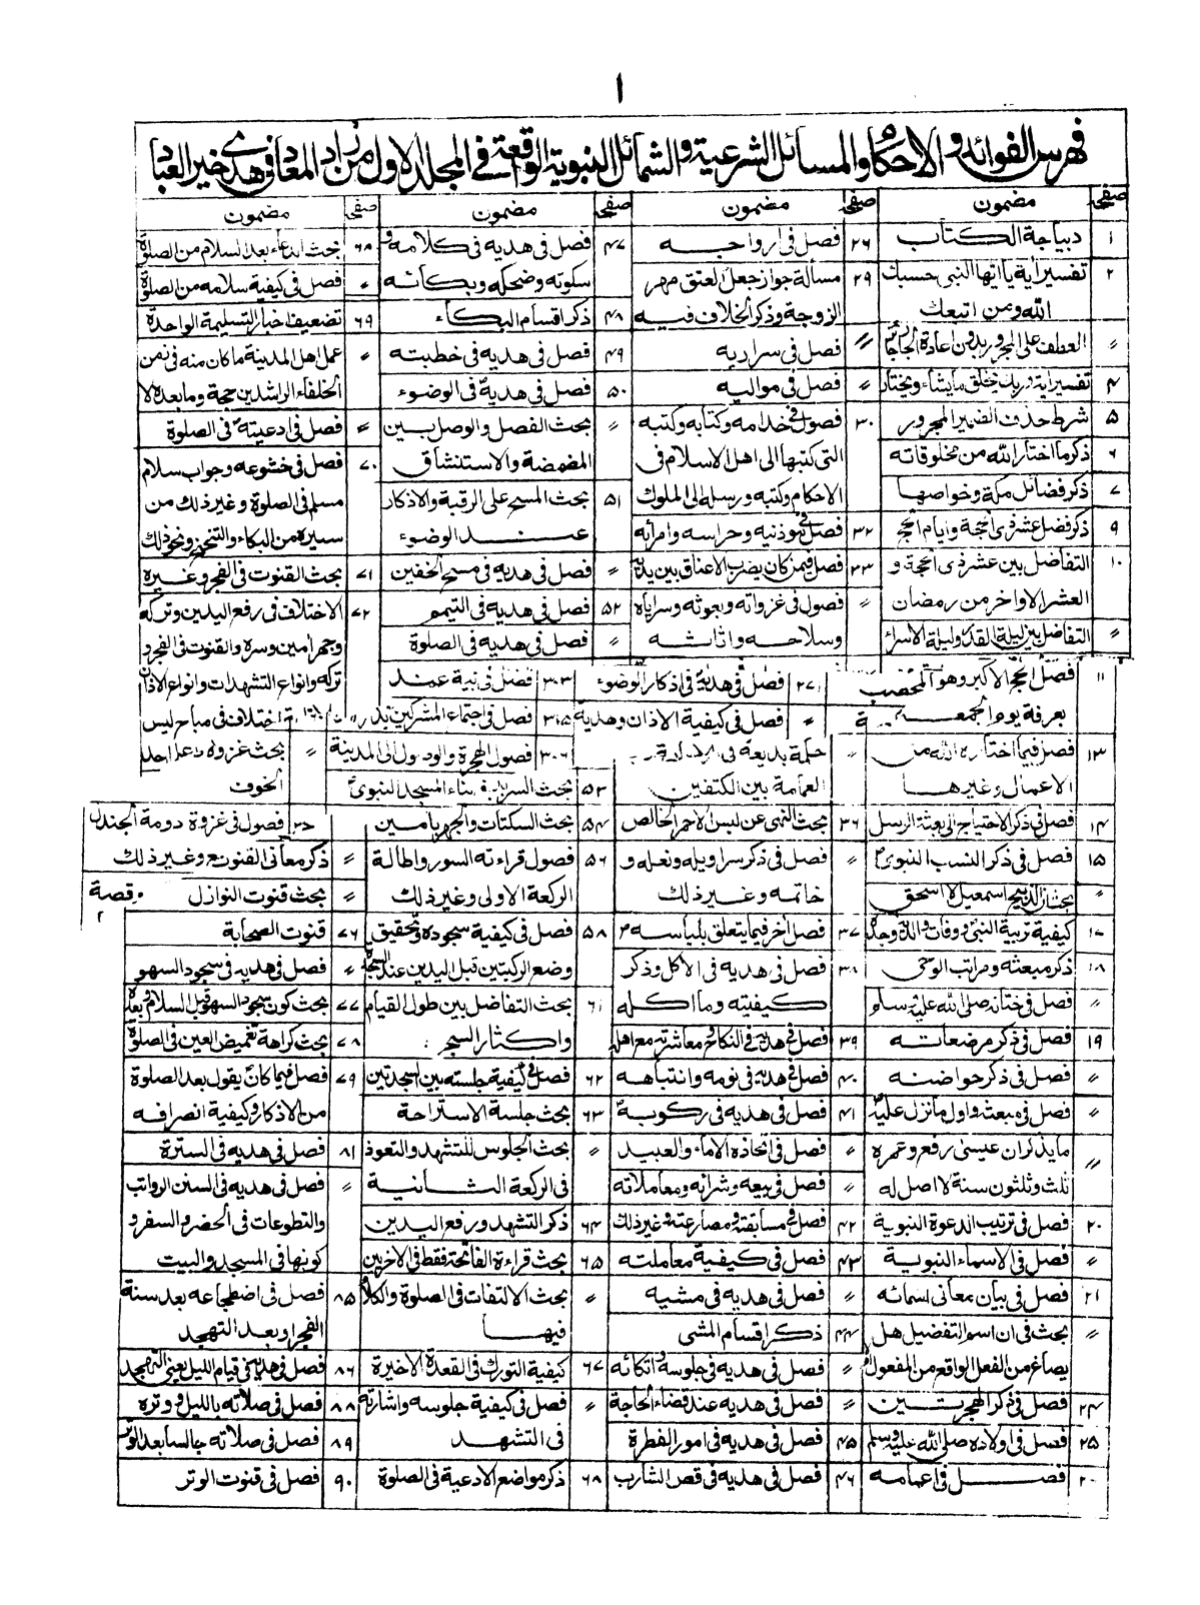 ١
فهرس الفوائد والاحكام والمسائل الشرعية والشمائل النبوية الواقعة في المجلد الاول من زاد المعاد في هدى خير العباد
صفحه مضمون
١ ديباجة الكتاب
٢ تفسير آية يا ايها النبي حسبك
الله ومن اتبعك
〃 العطف على المجرور بدون اعادة الجار جائز
٤ تفسير اية وربك يخلق ما يشاء ويختار
٥ شرط حذف الضمير المجرور
٦ ذكر ما اختار الله من مخلوقاته
٧ ذكر فضائل مكة وخواصها
٩ ذكر فضل عشر ذى الحجة وايام الحج
١٠ التفاضل بين عشر ذى الحجة و
العشر الاواخر من رمضان
〃 التفاضل بين ليلة القدر وليلة الاسراء
١١ فصل الحج الاكبر وهو
بعرفة يوم الجمعة
١٣ فصل فيما اختاره الله من
الاعمال وغيرها
١٤ فصل في ذكر الاحتياج الى بعثة الرسل
١٥ فصل في ذكر النسب النبوى
〃 بحث ان الذبيح اسمعيل لا اسحق
١٧ كيفية تربية النبي ووفات والديه وجده
١٨ ذكر مبعثه ومراتب الوحى
〃 فصل في ختانه صلى الله عليه وسلم
١٩ فصل في ذكر مرضعاته
〃 فصل في ذكر حواضنه
〃 فصل في مبعثه واول ما نزل عليه
〃 ما يذكر ان عيسى رفع وعمره
ثلث وثلثون سنة لا اصل له
٢٠ فصل في ترتيب الدعوة النبوية
〃 فصل في الاسماء النبوية
٢١ فصل في بيان معانى اسمائه
〃 بحث في ان اسم التفضيل هل
يصاغ من الفعل الواقع من المفعول
٢٤ فصل في ذكر الهجرتين
٢٥ فصل في اولاده صلى الله عليه وسلم
فصل في اعمامه
صفحه مضمون
٢٦ فصل في ازواجه
٢٩ مسألة جواز جعل العتق مهر
الزوجة وذكر الخلاف فيه
〃 فصل في سراريه
〃 فصل في مواليه
٣٠ فصول في خدامه وكتابه وكتبه
التى كتبها الى اهل الاسلام في
الاحكام وكتبه ورسله الى الملوك
٣٢ فصل في مؤذنيه وحراسه وامرائه
٣٣ فصل فيمن كان يضرب الاعناق بين يديه
〃 فصول في غزواته وبعوثه وسراياه
وسلاحه واثاثه
٢٧ فصل في هديه في اذكار الوضوء
〃 فصل في كيفية الاذان وهديه
〃 حلة بديعة في
العمامة بين الكتفين
٣٦ بحث النهى عن لبس الاحمر الخالص
〃 فصل في ذكر سراويله ونعله و
خاتمه وغير ذلك
٣٧ فصل اخر فيما يتعلق بلباسه
٣٨ فصل في هديه في الاكل وذكر
كيفيته وما اكله
٣٩ فصل في هديه في النكاح ومعاشرته مع اهله
٤٠ فصل في هديه في نومه وانتباهه
٤١ فصل في هديه في ركوبه
〃 فصل في اتخاذه الاماء والعبيد
〃 فصل في بيعه وشرائه ومعاملاته
٤٢ فصل في مسابقته ومصارعته وغير ذلك
٤٣ فصل في كيفية معاملته
〃 فصل في هديه في مشيه
٤٤ ذكر اقسام المشى
〃 فصل في هديه في جلوسه واتكائه
〃 فصل في هديه عند قضاء الحاجة
٤٥ فصل في هديه في امور الفطرة
٤٦ فصل في هديه في قص الشارب
صفحه مضمون
٤٧ فصل في هديه في كلامه و
سكوته وضحكه وبكائه
٤٨ ذكر اقسام البكاء
٤٩ فصل في هديه في خطبته
٥٠ فصل في هديه في الوضوء
〃 بحث الفصل والوصل بين
المضمضة والاستنشاق
٥١ بحث المسح على الرقبة والاذكار
عند الوضوء
〃 فصل في هديه في مسح الخفين
٥٢ فصل في هديه في التيمم
〃 فصل في هديه في الصلوة
٣٠٣ فصل في نبية عند
٣١٥ فصل في اجتماء المشركين
٣٠٦ فصول الهجرة والوصول الى المدينة
٥٣ بحث بناء المسجد النبوى
٥٤ بحث السكتات والجهر بامين
٥٦ فصول قراءته السور واطالة
الركعة الاولى وغير ذلك
٥٨ فصل في كيفية سجوده وتحقيق
وضع الركبتين قبل اليدين عند السجدة
٦١ بحث التفاضل بين طول القيام
واكثار السجود
٦٢ فصل في كيفية جلسته بين السجدتين
٦٣ بحث جلسة الاستراحة
〃 بحث الجلوس للتشهد والتعوذ
في الركعة الثانية
٦٤ ذكر التشهد ورفع اليدين
٦٥ بحث قراءة الفاتحة فقط في الاخريين
〃 بحث الالتفات في الصلوة والكلام
فيها
٦٧ كيفية التورك في القعدة الاخيرة
〃 فصل في كيفية جلوسه واشارته
في التشهد
٦٨ ذكر مواضع الادعية في الصلوة
صفحه مضمون
٦٨ بحث الدعاء بعد السلام من الصلوة
〃 فصل في كيفية سلامه من الصلوة
٦٩ تضعيف اخبار التسليمة الواحدة
〃 عمل اهل المدينة ما كان منه في زمن
الخلفاء الراشدين حجة وما بعده لا
〃 فصل في ادعيته في الصلوة
٧٠ فصل في خشوعه وجواب سلام
مسلم في الصلوة وغير ذلك من
سيره من البكاء والتنحنح ونحو ذلك
٧١ بحث القنوت في الفجر وغيره
٧٢ الاختلاف في رفع اليدين وتركه
وجهر امين وسره والقنوت في الفجر و
تركه وانواع التشهدات وانواع الاذان
اختلاف في مباح ليس
〃 بحث غزوة
الخوف
فصول في غزوة دومة الجندل
〃 ذكر معانى القنوت وغير ذلك
〃 بحث قنوت النوازل
قصة
٧٦ قنوت الصحابة
〃 فصل في هديه في سجود السهو
٧٧ بحث كون سجود السهو قبل السلام وبعده
٧٨ بحث كراهة تغميض العين في الصلوة
٧٩ فصل فيما كان يقول بعد الصلوة
من الاذكار وكيفية انصرافه
٨١ فصل في هديه في السترة
〃 فصل في هديه في السنن الرواتب
والتطوعات في الحضر والسفر و
كونها في المسجد والبيت
٨٥ فصل في اضطجاعه بعد سنة
الفجر او بعد التهجد
٨٦ فصل في هديه في قيام الليل يعنى التهجد
٨٨ فصل في صلاته بالليل ووتره
٨٩ فصل في صلاته جالسا بعد الوتر
٩٠ فصل في قنوت الوتر